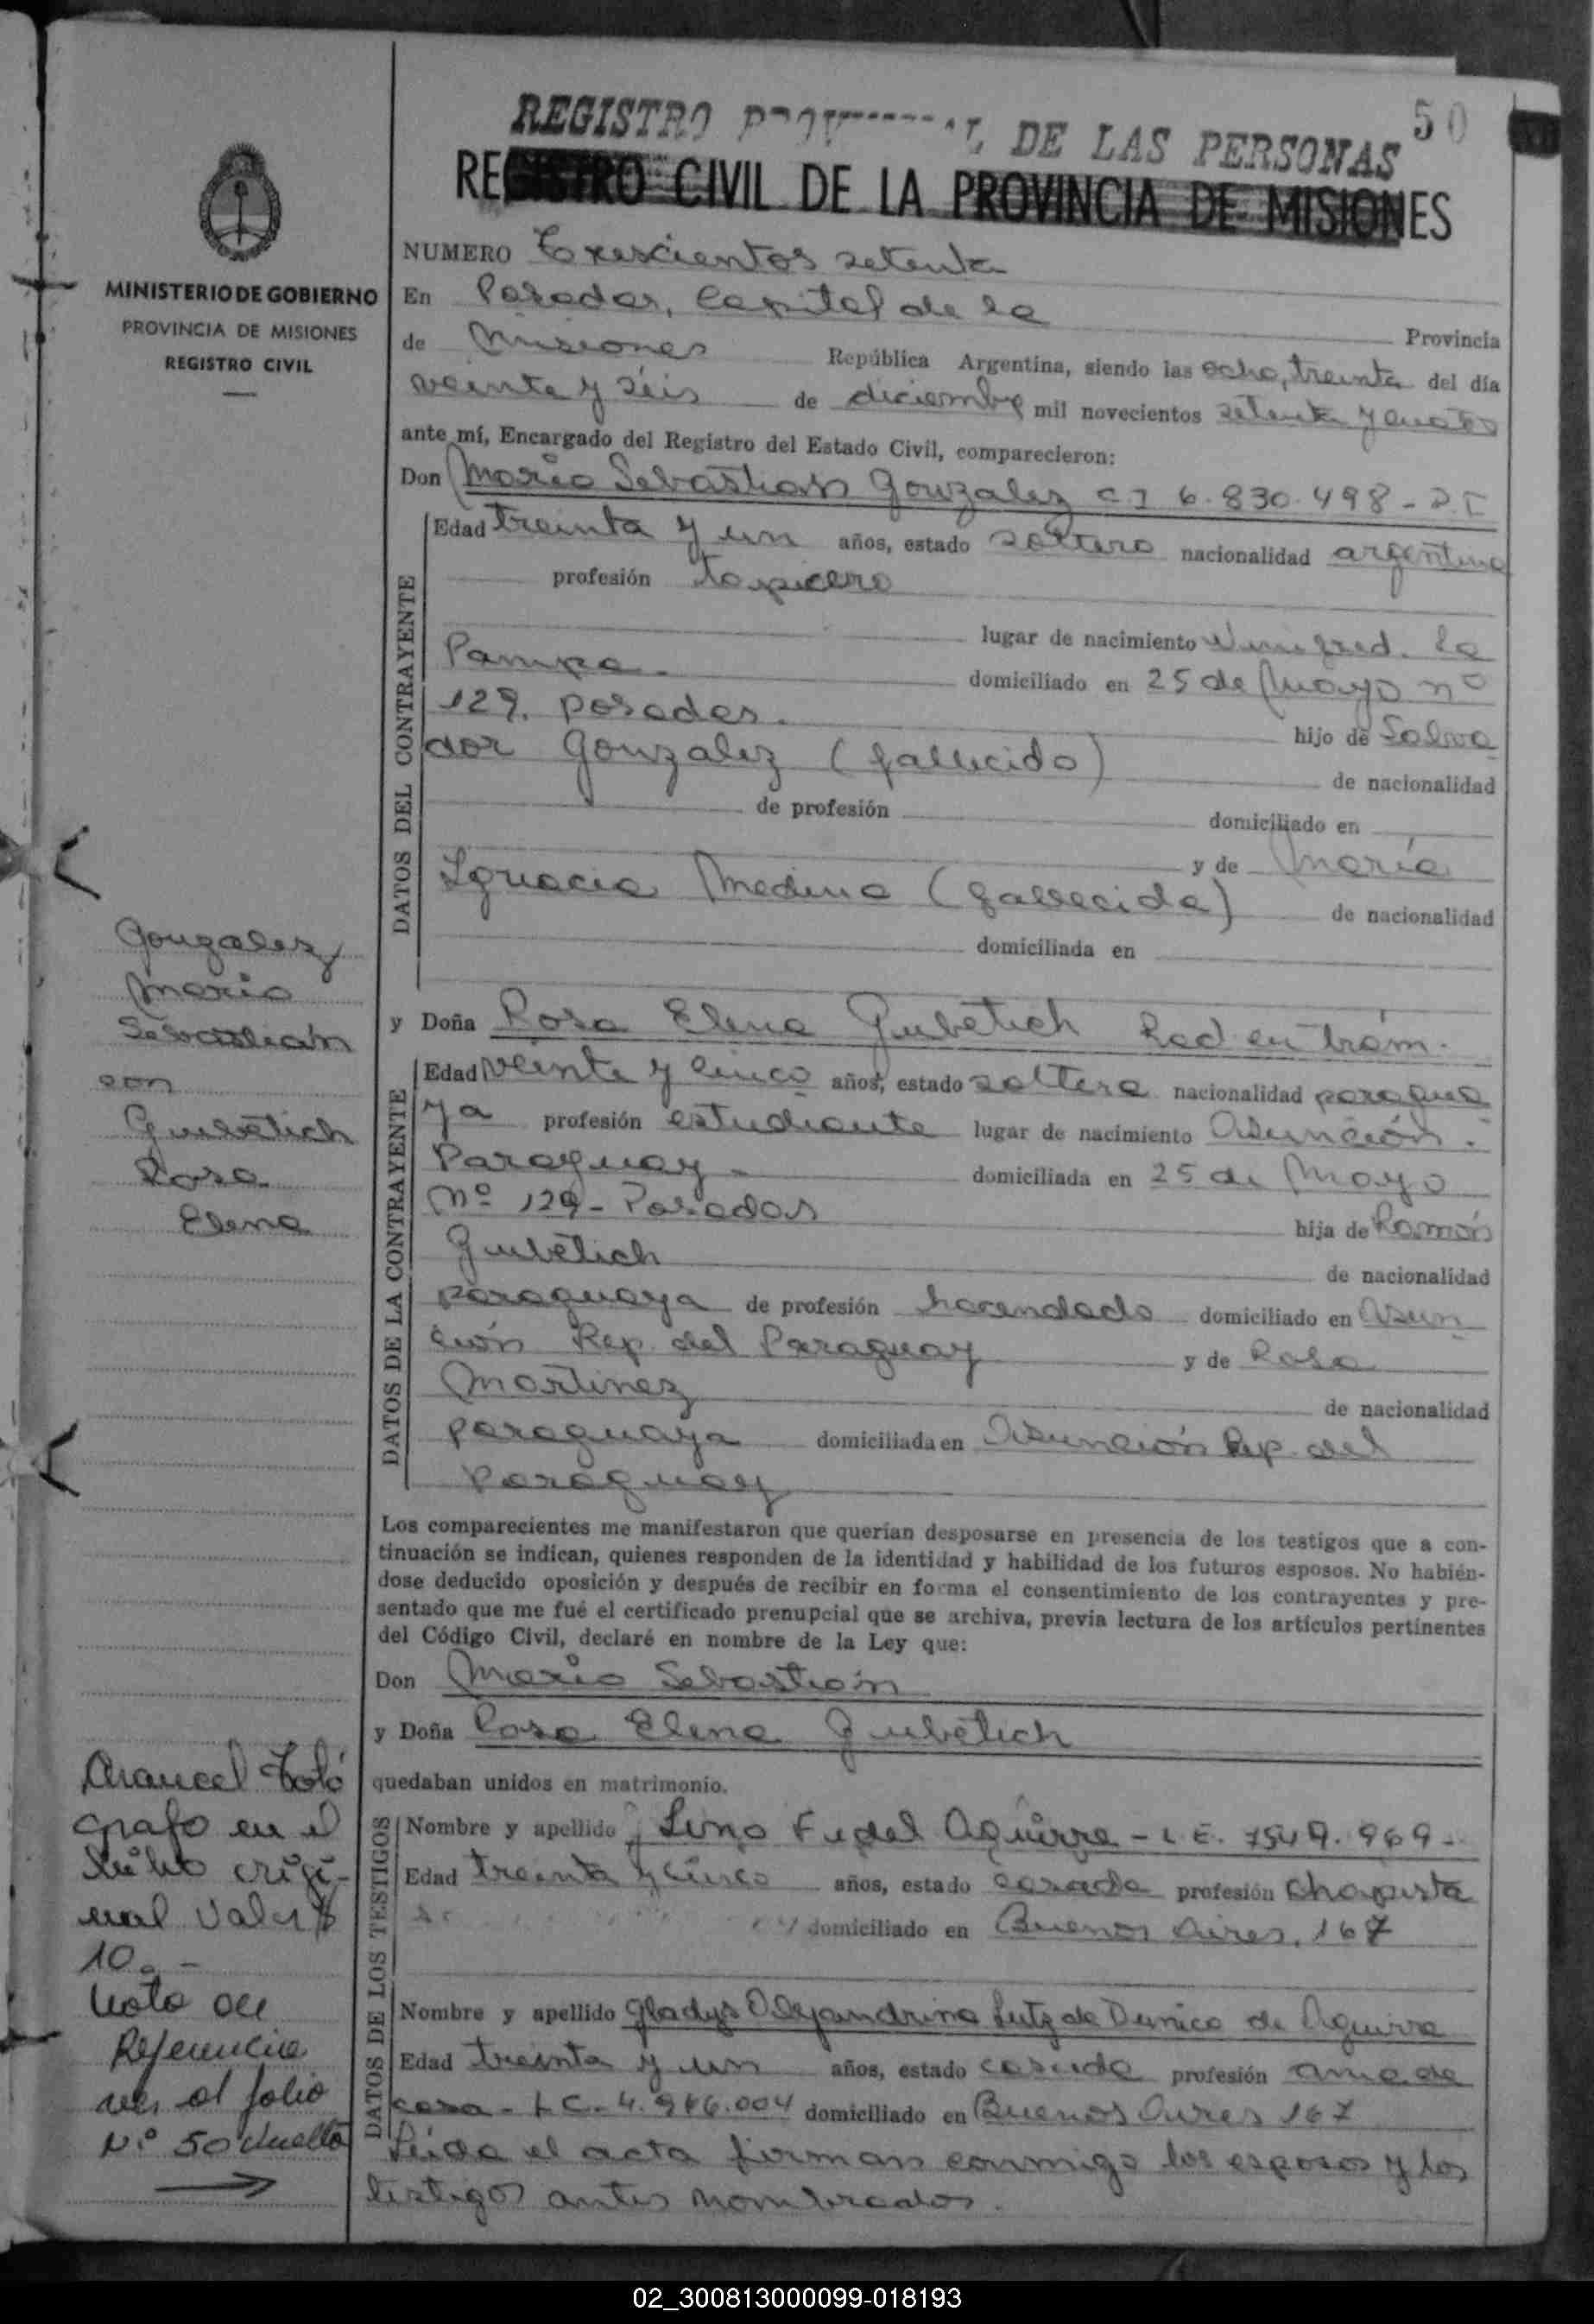 50
REGISTRO PROVINCIAL DE LAS PERSONAS
REGISTRO CIVIL DE LA PROVINCIA DE MISIONES
MINISTERIO DE GOBIERNO
PROVINCIA DE MISIONES
REGISTRO CIVIL
NUMERO Trescientos setenta
En Posadas, Capital de la Provincia
de Misiones República Argentina, siendo las ocho, treinta del día
veinte y séis de diciembre mil novecientos setenta y cuatro
ante mí, Encargado del Registro del Estado Civil, comparecieron:
Don Mario Sebastian Gonzalez C I 6.830.498 -
DATOS DEL CONTRAYENTE
Edad treinta y un años, estado soltero nacionalidad argentina
profesión tapicero
lugar de nacimiento Winifred. La
Pampa. domiciliado en 25 de Mayo nº
129. Posadas. hijo de Salva
dor Gonzalez (fallecido) de nacionalidad
de profesión domiciliado en
y de María
Ignacia Medina (fallecida) de nacionalidad
domiciliada en
y Doña Rosa Elena Gubetich Rad en trám.
DATOS DE LA CONTRAYENTE
Edad veinte y cinco años, estado soltera nacionalidad paragua
ya profesión estudiante lugar de nacimiento Asunción.
Paraguay - domiciliada en 25 de Mayo
Nº 129 - Posadas hija de Ramón
Gubetich de nacionalidad
paraguaya de profesión hacendado domiciliado en Asun
ción Rep. del Paraguay y de Rosa
Martinez de nacionalidad
paraguaya domiciliada en Asunción Rep. del
Paraguay
Los comparecientes me manifestaron que querían desposarse en presencia de los testigos que a con-
tinuación se indican, quienes responden de la identidad y habilidad de los futuros esposos. No habién-
dose deducido oposición y después de recibir en forma el consentimiento de los contrayentes y pre-
sentado que me fué el certificado prenupcial que se archiva, previa lectura de los artículos pertinentes
del Código Civil, declaré en nombre de la Ley que:
Don Mario Sebastián
y Doña Rosa Elena Gubetich
quedaban unidos en matrimonio.
DATOS DE LOS TESTIGOS
Nombre y apellido Lino Fidel Aguirre - L E. 7549.969 -
Edad treinta y cinco años, estado casado profesión chapista
domiciliado en Buenos Aires, 167
Nombre y apellido Gladys Alejandrina Lutz de Dunica de Aguirre
Edad treinta y un años, estado casada profesión ama de
casa - L C - 4.946.004 domiciliado en Buenos Aires 167
Leida el acta firman conmigo los esposos y los
testigos antes nombrados.
Gonzalez
Mario
Sebastián
con
Gubetich
Rosa
Elena
Arancel Foto
grafo en el
libro origi-
nal Valor $
10. -
Nota de
Referencia
ver al folio
Nº 50 vuelto
02_300813000099-018193